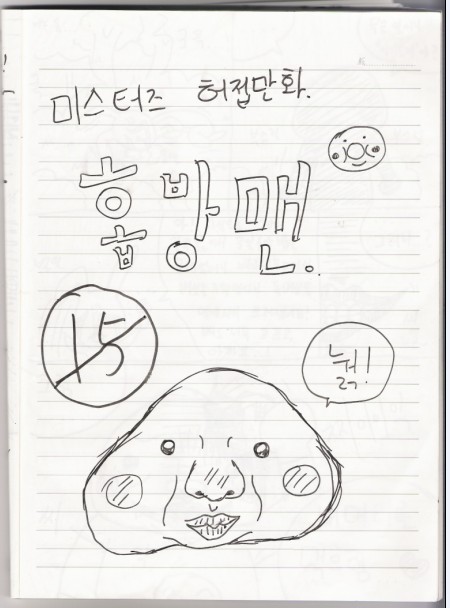 미스터즈 허접만화.
홉방맨.
15